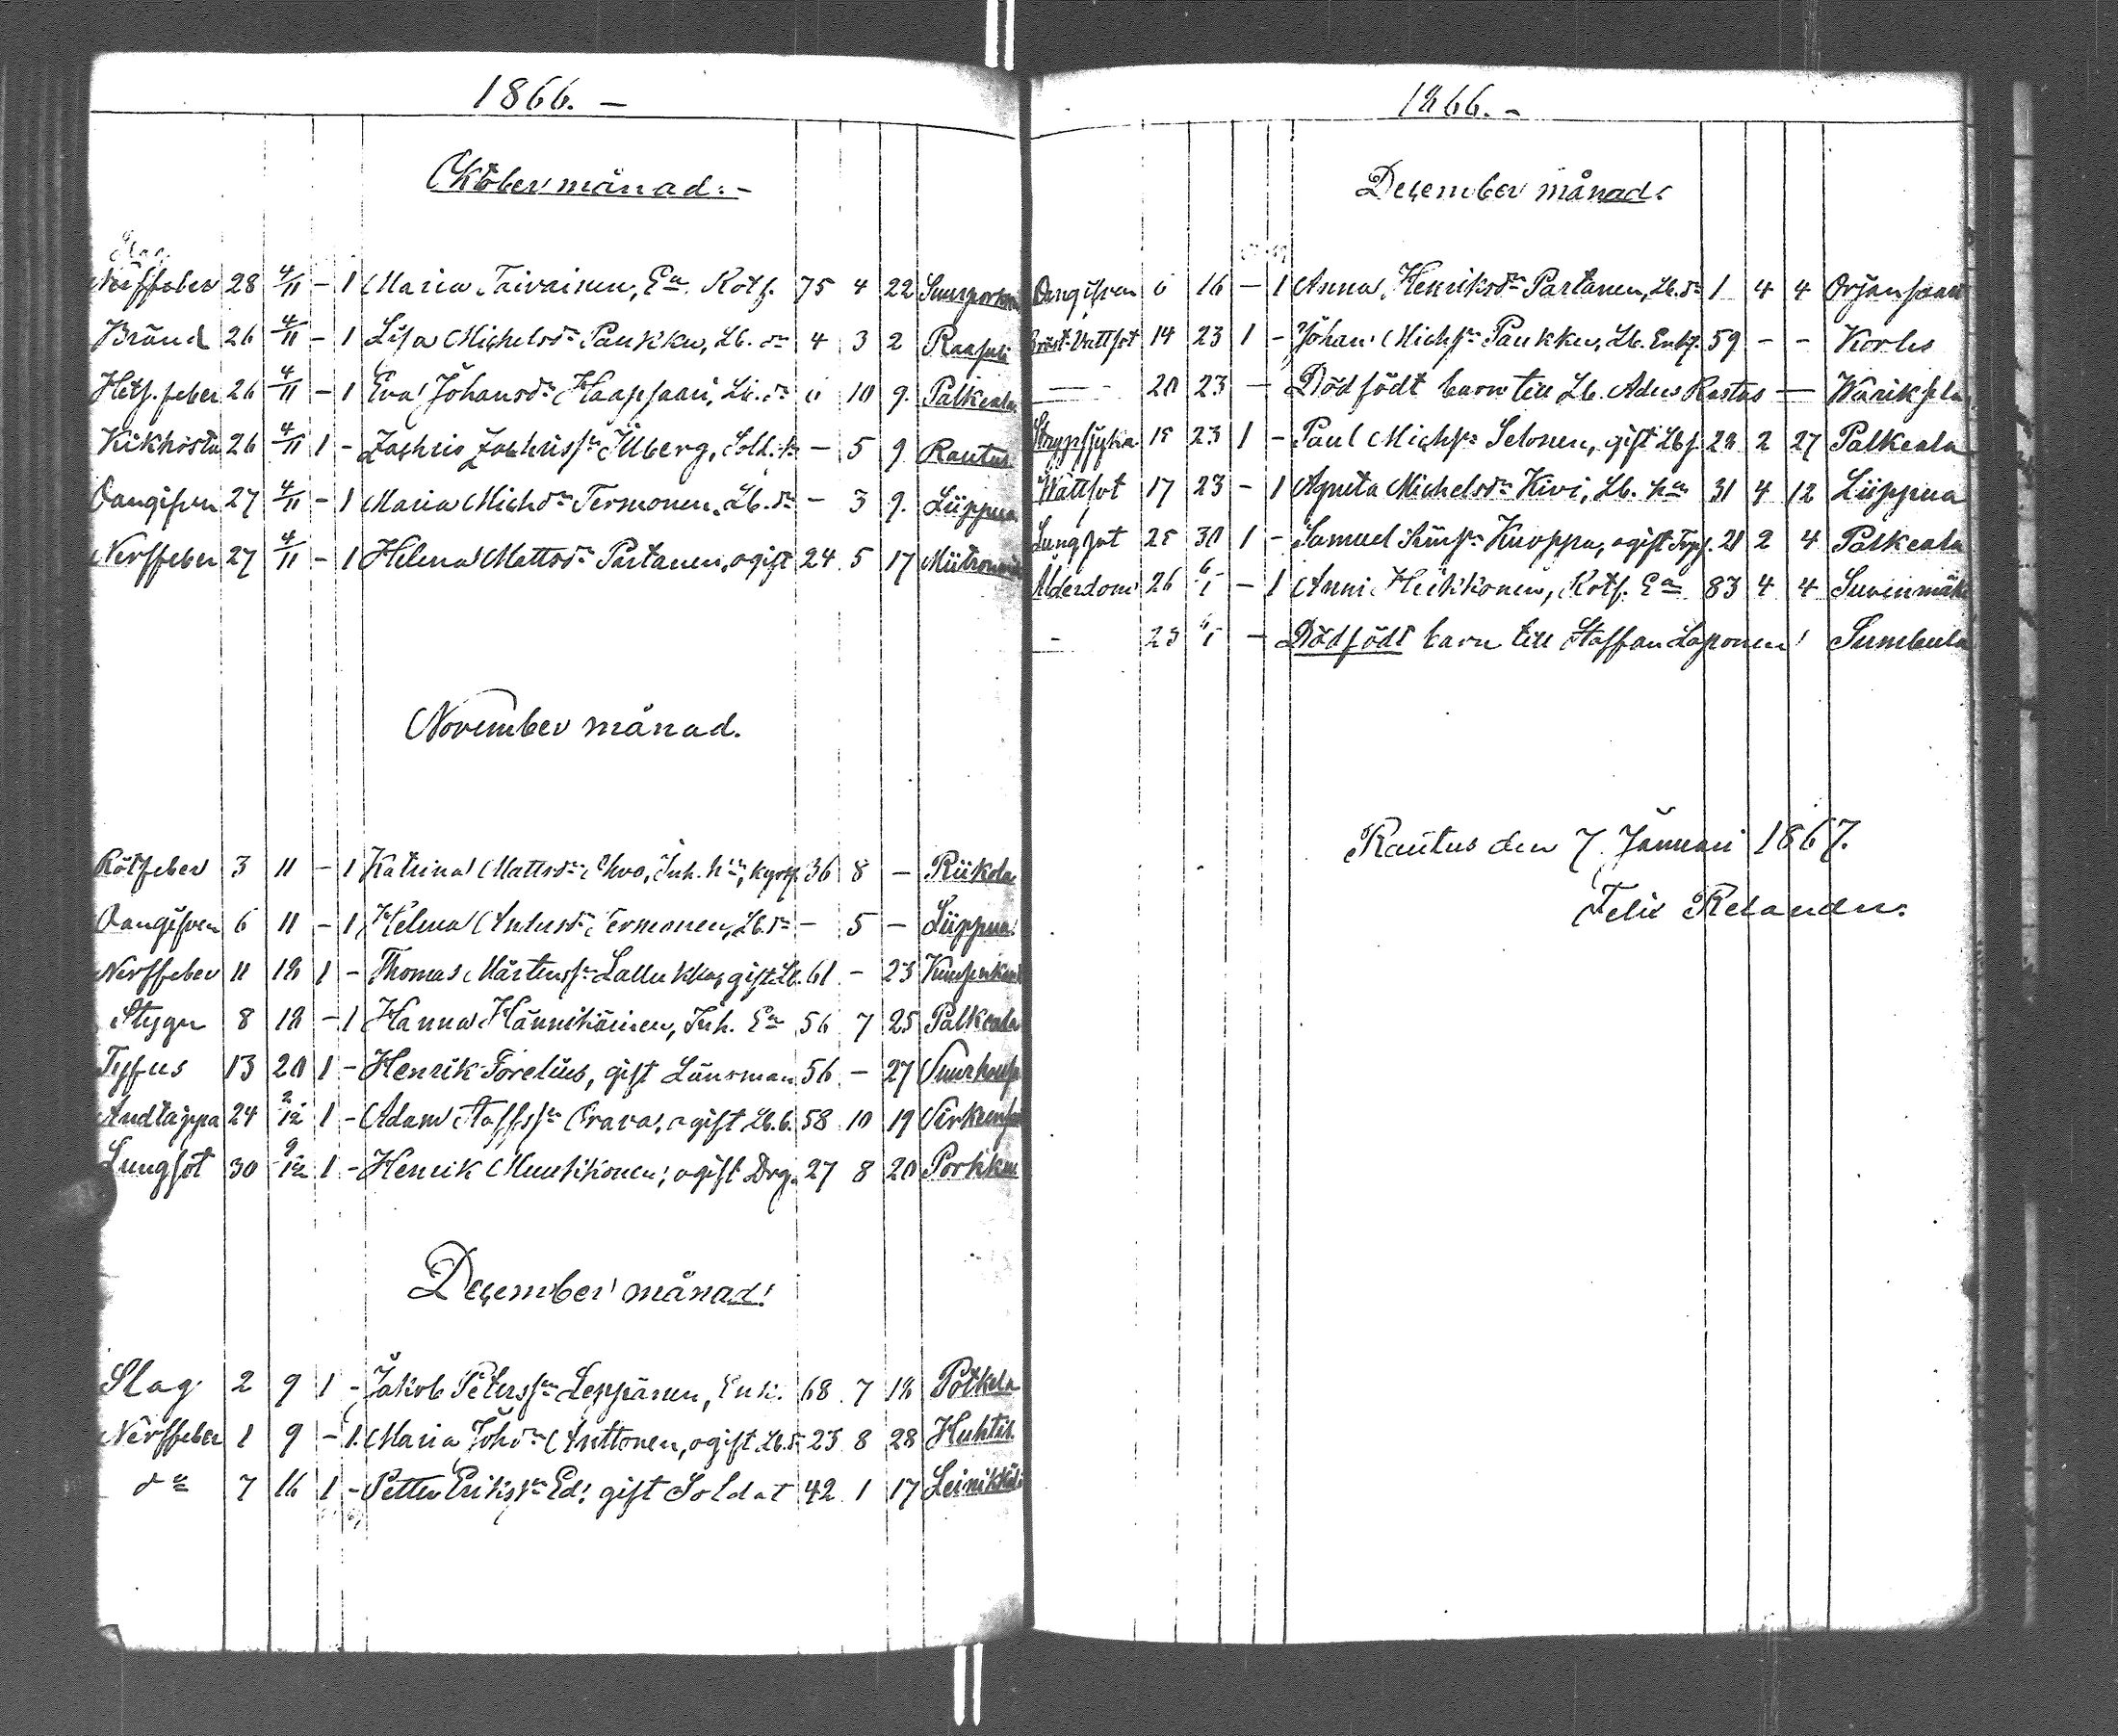 1866. –
Oktober månad. –
Slag
Nerffeber 28 4/11 – 1 Maria Taivainen, Ea Rotf. 75 4 22
Bränd 26 4/11 – 1 Lisa Michelsdr Paukku, Lb. dr 4 3 2 Raasuli
Hetf. feber 26 4/11 – 1 Eva Johansdr Haapsaari, Lb. dr 0 10 9. Palkeala
Kikhosta 26 4/11 1 – Zachris Zachrissn Illberg, Sold. sn – 5 9 Rautus
Oangifven 27 4/11 – 1 Maria Michdr Termonen, Lb. dr – 3 9. Liippua
Nerffeber 27 4/11 – 1 Helena Mattsdr Partanen, ogift 24 5 17
November månad.
Rötfeber 3 11 – 1 Katrina Mattsdr Orvo, Inh. hu, 36 8 – Riikola
Oangifven 6 11 – 1 Helena Antusdr Termonen, Lb. dr – 5 – Liippua
Nerffeber 11 18 1 – Thomas Mårtenssn Lallukka, gift Lb. 61 – 23
Stygn 8 18 – 1 Hanna Hännikäinen, Inh. Ea 56 7 25 Palkeala
Tyfus 13 20 1 – Henrik Forelius, gift Länsman 56 – 27
Andtäppa 24 2/12 1 – Adam Staffssn Orava, ogift Lb. b. 58 10 19
Lungsot 30 9/12 1 – Henrik Muukkonen, ogift Drg. 27 8 20 Porkku
December månad.
Slag 2 9 1 – Jakob Peterssn Leppänen, Enk. 68 7 18 Potkela
Nerffeber 1 9 – 1 Maria Johdr Anttonen, ogift Lb. d. 23 8 28 Huhtis
do 7 16 1 – Petter Erikssn Ed, gift Soldat 42 1 17
1866. –
December månad.
Oangifven 6 16 – 1 Anna Henriksdr Partanen, Lb. dr 1 4 4 Orjansaari
Bröst-Vattsot 14 23 1 – Johan Michsn Paukku, Lb. Enkl. 59 – – Korles
— 20 23 – Dödfödt barn till Lb. Adus Rastas —
Strypsjuka 15 23 1 – Paul Michsn Selonen, gift Lbf 28 2 27 Palkeala
Wattsot 17 23 – 1 Agneta Michelsdr Kivi, Lb. hu 31 4 12 Liippua
Lungsot 25 30 1 – Samuel Simsn Kuoppa, ogift 21 2 4 Palkeala
Ålderdom 26 6/1 – 1 Anni Heikkonen, Rotf. Ea 83 4 4 Suvenmäki
– 23 6/1 – Dödfödt barn till Staffan Loponen Sumbula
Rautus den 7. Januari 1867.
Felix Relander.